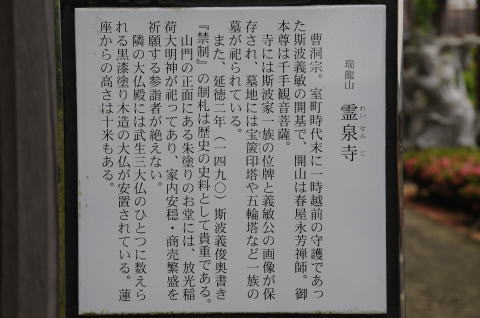 瑞龍山
霊泉寺
れいせんじ
曹洞宗。室町時代末に一時越前の守護であっ
た斯波義敏の開基で、開山は春屋永芳禅師。御
本尊は千手観音菩薩。
寺には斯波家一族の位牌と義敏公の画像が保
存され、墓地には宝篋印塔や五輪塔など一族の
墓が祀られている。
また、延徳二年（一四九〇）斯波義俊奥書き
『禁制』の制札は歴史の史料として貴重である。
山門の正面にある朱塗りのお堂には、放光稲
荷大明神が祀ってあり、家内安穏・商売繁盛を
祈願する参詣者が絶えない。
隣の大仏殿には武生三大仏のひとつに数えら
れる黒漆塗り木造の大仏が安置されている。蓮
座からの高さは十米もある。